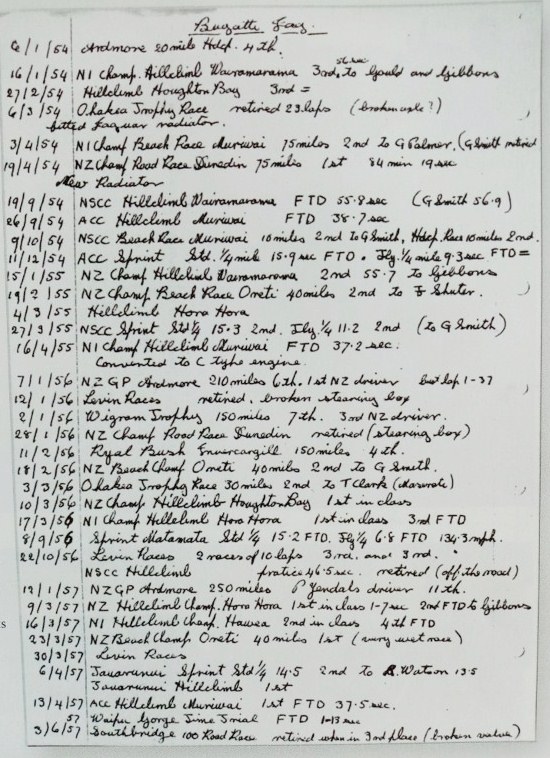 Bugatti Jag.
6/1/54 Ardmore 20 mile Hdcp. 4th.
56 sec
16/1/54 NI Champ. Hillclimb Wairamarama 3rd, to Gould and Gibbons
27/2/54 Hillclimb Houghton Bay 3rd =
6/3/54 Ohakea Trophy Race retired 23 laps (broken axle?)
fitted Jaguar radiator.
3/4/54 NI Champ Beach Race Muriwai 75 miles 2nd to G Palmer. (G Smith retired
19/4/54 NZ Champ Road Race Dunedin 75 miles 1st 84 min 19 sec
New Radiator
19/9/54 NSCC Hillclimb Wairamarama FTD 55.8 sec (G Smith 56.9)
26/9/54 ACC Hillclimb Muriwai FTD 38.7 sec
9/10/54 NSCC Beach Race Muriwai 10 miles 2nd to G Smith, Hdcp. Race 10 miles 2nd.
11/12/54 ACC Sprint Std. 1/4 mile 15.9 sec FTD. Fly. 1/4 mile 9.3 sec FTD =
15/1/55 NZ Champ Hillclimb Wairamarama 2nd 55.7 to Gibbons
19/2/55 NZ Champ Beach Race Oreti 40 miles 2nd to F Shuter.
4/3/55 Hillclimb Hora Hora
27/3/55 NSCC Sprint Std 1/4 15.3 2nd. Fly. 1/4 11.2 2nd (to G Smith)
16/4/55 NI Champ Hillclimb Muriwai FTD 37.2 sec.
Converted to C type engine.
7/1/56 NZ GP Ardmore 210 miles 6th. 1st NZ driver best lap 1-37
12/1/56 Levin Races retired, broken stearing box
2/1/56 Wigram Trophy 150 miles 7th. 3rd NZ driver.
28/1/56 NZ Champ Road Race Dunedin retired (stearing box)
11/2/56 Ryal Bush Envercargill 150 miles 4th.
18/2/56 NZ Beach Champ Oreti 40 miles 2nd to G Smith.
3/3/56 Ohakea Trophy Race 30 miles 2nd to T Clark (Maserati)
10/3/56 NZ Champ Hillclimb Houghton Bay 1st in class
17/3/56 NI Champ Hillclimb Hora Hora 1st in class 3rd FTD
8/9/56 Sprint Matamata Std 1/4 15.2 FTD. Fly 1/4 6.8 FTD 134.3 mph.
22/10/56 Levin Races 2 races of 10 laps 3rd. and 3rd.
NSCC Hillclimb pratice 46.5 sec. retired (off the road)
12/1/57 NZGP Ardmore 250 miles P Yendals driver 11th.
9/3/57 NZ Hillclimb Champ. Hora Hora 1st in class 1-7 sec 2nd FTD to Gibbons
16/3/57 NI Hillclimb Champ. Hawea 2nd in class 4th FTD
23/3/57 NZ Beach Champ Oreti 40 miles 1st (very wet race)
30/3/57 Levin Races
6/4/57 Tauaranui Sprint Std 1/4 14.5 2nd to R. Watson 13.5
Tauaranui Hillclimb 1st
13/4/57 ACC Hillclimb Muriwai 1st FTD 37.5 sec.
57 Waipu Gorge Time Trial FTD 1-13 sec
3/6/57 Southbridge 100 Road Race retired when in 3rd place (broken valve)
s